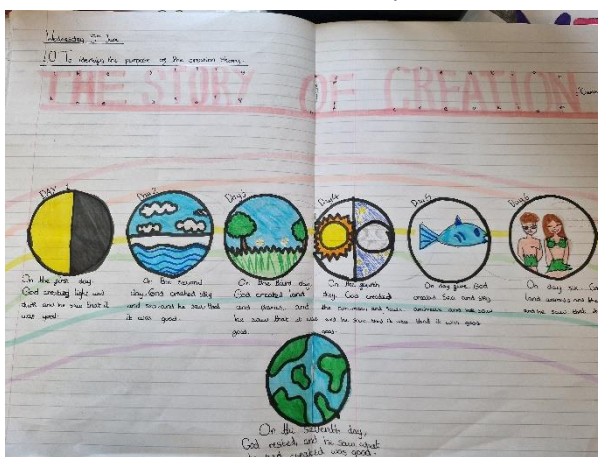 Wednesday
LO To identify the purpose of the creation story.
THE STORY OF CREATION
DAY 1
Day 2
Day 3
Day 4
Day 5
Day 6
On the first day,
God created light and
dark and he saw that it
was good.
On the second
day, God created sky
and sea and he saw that
it was good.
On the third day,
God created land
and plants, and
he saw that it was
good.
On the fourth
day, God created
the sun moon and stars
and he saw that it was
good.
On day five God
created sea and sky
animals and he saw
that it was good
On day six, God
land animals and
and he saw that it
On the seventh day,
God rested, and he saw what
he had created was good.